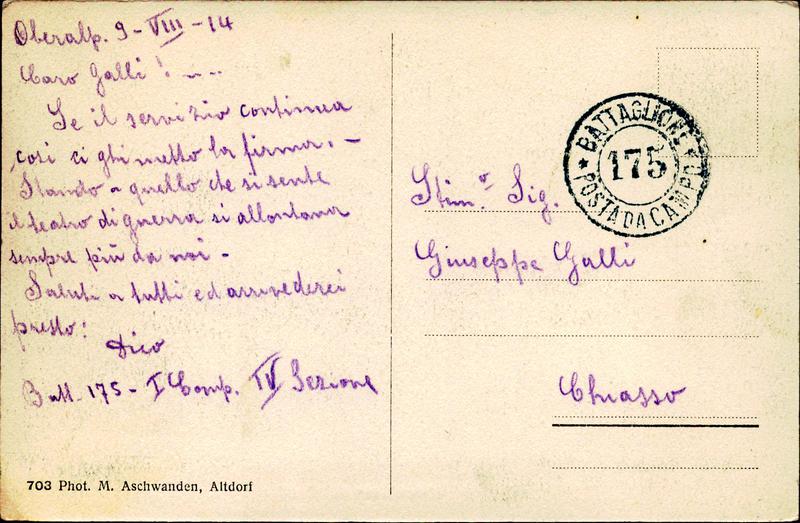 Oberalp. 9-VIII-14
Caro Galli! - ..
Se il servizio continua
così ci ghi metto la firma. -
Stando a quello che si sente
il teatro di guerra si allontana
sempre più da noi -
Saluti a tutti ed arrivederci
presto!
Dico
Batt. 175 - I Comp. IV Sezione
703 Phot. M. Aschwanden, Altdorf
* BATTAGLIONE *
175
POSTA DA CAMPO
Stim.º Sig.
Giuseppe Galli
Chiasso